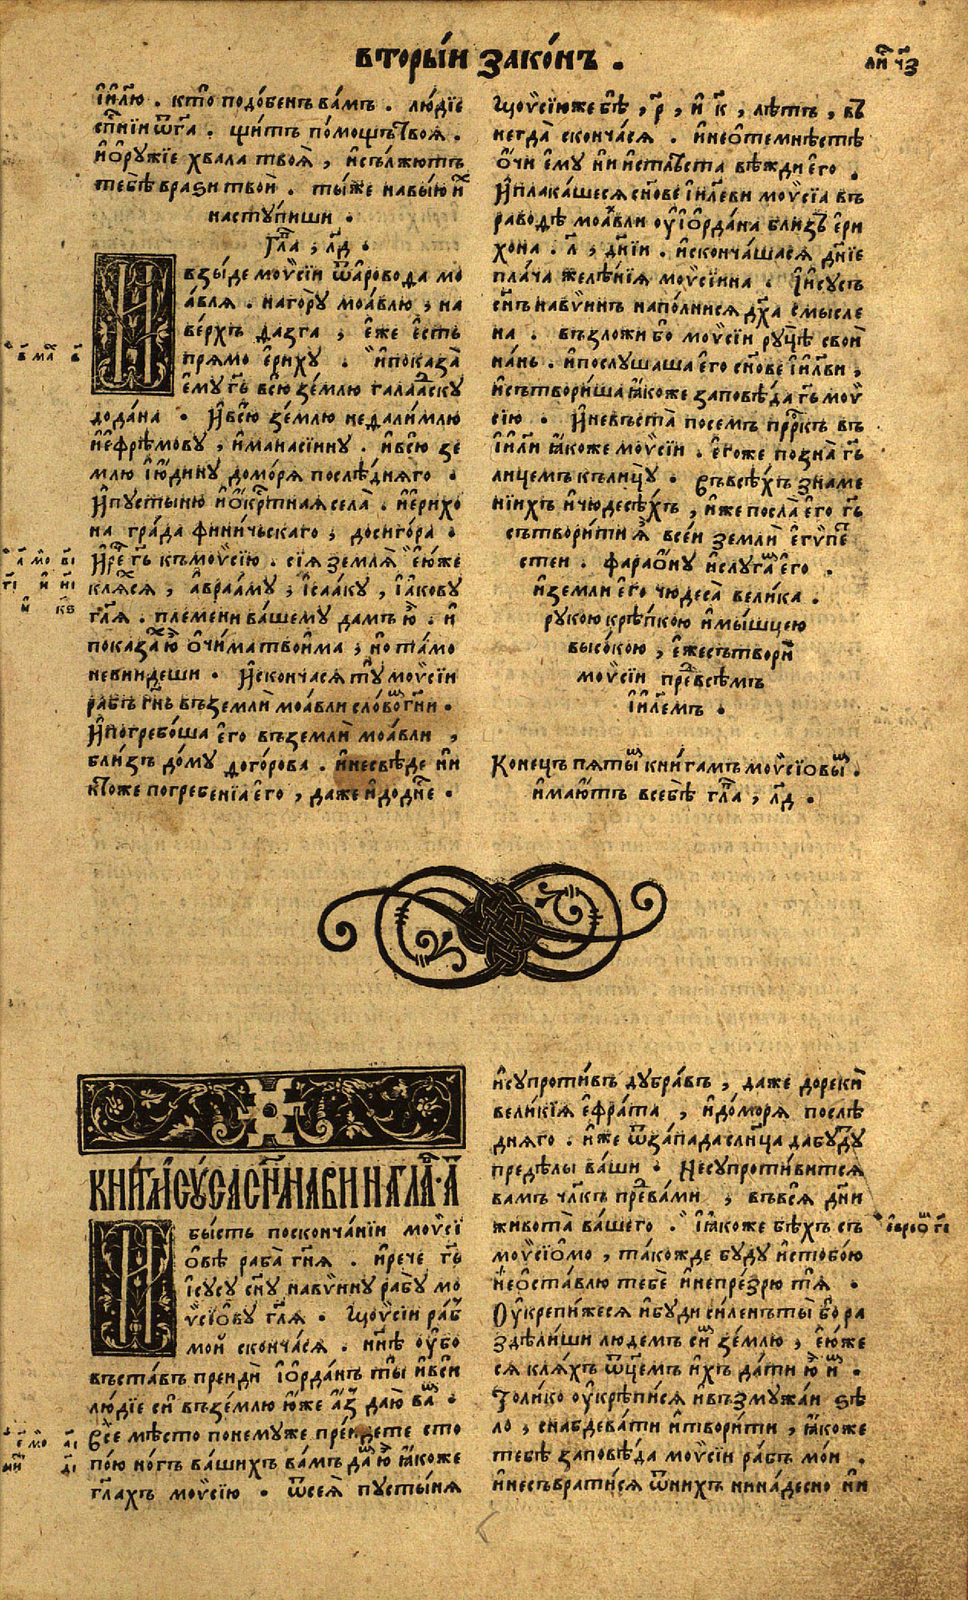 вторы́й зако́нъ .
ли҃ ч҃з
і҆и҃лю . кто̀ подо́бенъ ва́мъ . лю́дїе
сп҃нїи ѿ гд҃а . щи́тъ по́мощъ твоя̀ .
и҆ ѻ҆ру́жїе хвала̀ твоя̀ , и҆ сължю́тъ
тебѣ̀ врази̂ твои̂ . ты́же на вы́ю и҆х
насту́пиши .
гл҃а , л҃д .
И҆ взы́де моѵ̈сїи ѿ арово́да мо
а́вля . на го́ру моа́влю , на
ве́рхъ ѳазга , е҆́же е҆́сть
пря́мо е҆ри́ху . и҆ показа̀
е҆му̀ гь҃ всю̀ зе́млю галаа́ску
до да́на . И҆ всю̀ зе́млю неѳали́млю
и҆ е҆фре́мову , и҆ манасі́ину . и҆ всю̀ зе
млю і҆ю́дину до мо́ря послѣ́дняго .
И҆ пусты́ню и҆ ѻ҆кре́тная села̀ . и҆ е҆рихо
на гра́да фини́чьскаго , до сиго́ра .
И҆ речѐ гь҃ къ моѵ̈сїю . сїя̀ земля̀ е҆ю́же
кля́хся , а҆враа́му , і҆саа́ку , і҆а́кову
гл҃я . пле́мени ва́шему да́мъ ю҆̀ . и҆
показа́х ю҆̀ ѻ҆чи́ма твои́ма , но та́мо
не вни́деши . И҆ сконча́ся ту̀ моѵ̈сїи
ра́бъ гн҃ь въ землѝ моа́вли сло́вом гн҃и .
И҆ погребо́ша е҆го̀ въ землѝ моа́вли ,
бли́зъ до́му ѳого́рова . и҆ не свѣ́де ни
кто́же погребе́нїя е҆го̀ , да́же и҆ до дн҃е .
Моѵ̈сїю же бѣ̀ , р҃ , и҆ к҃ , лѣ́тъ , въ
негда̀ сконча́ся . и҆ не ѻ҆темнѣ́стѣ
ѻ҆́чи е҆му̀ ни и҆стлѣ́ста вѣ́жди е҆го̀ .
И҆ пла́кашеся сн҃ове і҆и҃леви моѵ̈сїа въ
раво́дѣ моа́вли ѹ҆ і҆ѻ҆рда́на бли́зъ е҆ри
хо́на . л҃ , дн҃їи . и҆ сконча́шася дн҃їе
пла́ча желѣ́нїя моѵ̈сі́ина . І҆ису́съ
сн҃ъ навѵ́инъ напо́лнися дх҃а смы́сле
на . възложи́ бо моѵ̈сїи ру́цѣ свои̂
на́нь . и҆ послу́шаша е҆го̀ сн҃ове і҆и҃лви ,
и҆ сътвори́ша ꙗ҆́коже заповѣ́да гь҃ моѵ̈
сїю . И҆ не въста̀ посе́мъ прⷪ҇ркъ въ
і҆и҃ли ꙗ҆́коже моѵ̈сїи . е҆го́же позна̀ гь҃
лице́мъ къ лицу̀ . Съ всѣ́хъ зна́ме
нїихъ и҆ чюдесѣ́хъ , и҆́же посла̀ е҆го̀ гь҃
сътвори́ти ꙗ҆̀ все́и землѝ е҆гѵ́пе
стеи . фараѡ́ну и҆ слуга́м е҆го̀ .
и҆ землѝ е҆го̀ чюдеса̀ вели́ка .
руко́ю крѣ́пкою и҆ мы́шцею
высо́кою , е҆́же сътворѝ
моѵ̈сїи пред всѣ́мъ
і҆и҃лемъ .
Коне́цъ пяты́м кни́гамъ моѵ̈сїовы́м .
и҆му́тъ в себѣ̀ гл҃а , л҃д .
КНИГА І҆СУ́СА СН҃А НАВИНА ГЛА҃ . А҃
И҆ бы́сть по сконча́нїи моѵ̈сї
о́вѣ раба̀ гн҃я . и҆ речѐ гь҃
і҆су́су сн҃у навѵ́ину рабу̀ мо
ѵ̈сїо́ву гл҃я . Моѵ̈сїи ра́б
мо́и сконча́ся . нн҃ѣ ѹ҆́бо
въста́въ преидѝ і҆ѻ҆рда́нъ ты̀ и҆ всѝ
лю́дїе сїѝ въ зе́млю ю҆́же а҆́з даю̀ ва́м .
Всѐ мѣ́сто по нему́же пре́идете сто
по́ю но́гъ ва́шихъ ва́мъ да́м ю҆̀ ꙗ҆́коже
гл҃ахъ моѵ̈сїю . ѿ сея̀ пусты́ня
и҆ супроти́въ дубра́въ , да́же до рекѝ
вели́кїя е҆фра́та , и҆ до мо́ря послѣ́
дняго . и҆́же ѿ за́пада сл҃нца да бу́ду
предѣ́лы ва́ши . Не супроти́вится
ва́мъ чл҃къ пред ва́ми , въ вся̀ дн҃и
живота̀ ва́шего . ꙗ҆́коже бѣ́хъ съ
моѵ̈сїо́мо , та́кожде бу́ду и҆ с тобо́ю
и҆ не ѻ҆ста́влю тебѐ и҆ не пре́зрю тя̀ .
Ѹ҆крепи́жеся и҆ бу́ди си́ленъ ты́ бо ра
здѣли́ши лю́демъ сїю̀ зе́млю , е҆ю́же
ся кля́хъ ѿце́мъ и҆́хъ да́ти ю҆̀ и҆́м .
Толи́ко ѹ҆крѣпи́ся и҆ възмужа́и ѕѣ
ло̀ , снабдева́ти и҆ твори́ти , ꙗ҆́коже
тебѣ̀ заповѣ́да моѵ̈сїи ра́бъ мо́и .
и҆ не съврати́ся ѿ ни́хъ ни на де́сно ни